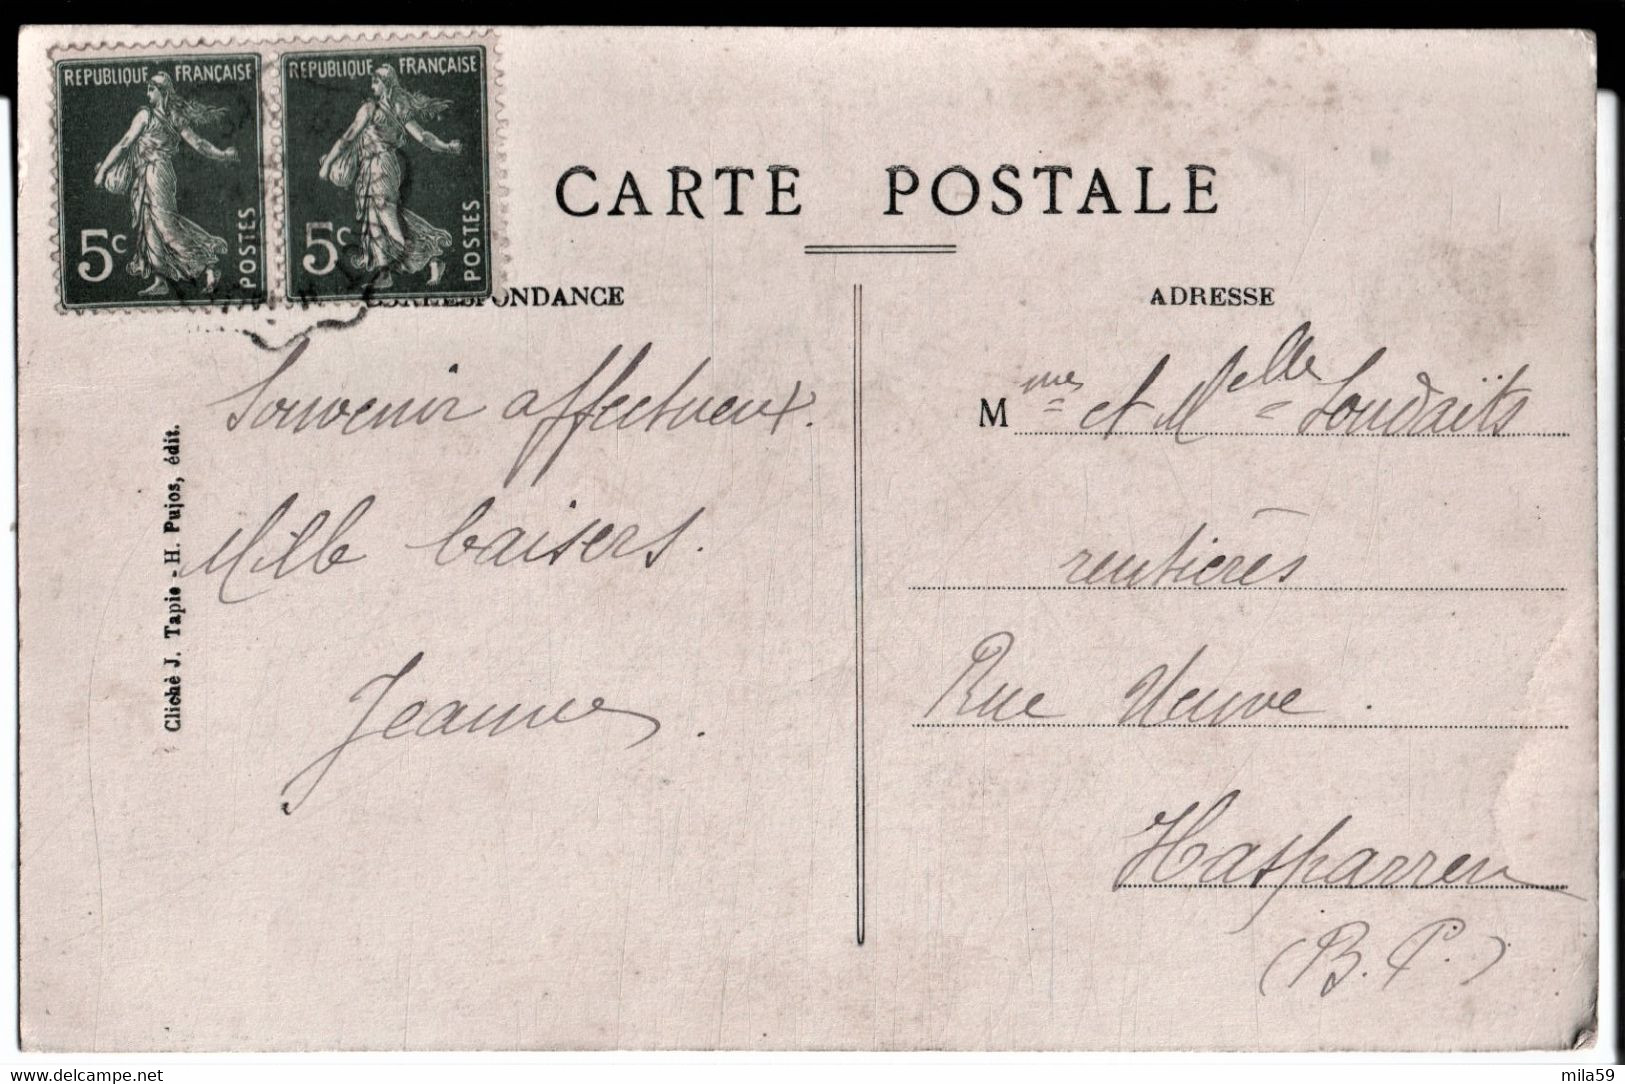 REPUBLIQUE FRANÇAISE
5c
POSTES
REPUBLIQUE FRANÇAISE
5c
POSTES
CARTE POSTALE
CORRESPONDANCE
Souvenir affectueux.
Mille baisers.
Jeanne.
Cliché J. Tapie - H. Pujos, édit.
ADRESSE
Mmes et Melle Loudaïts
rentières
Rue Neuve.
Hasparren
(B. P.)
delcampe.net
mila59